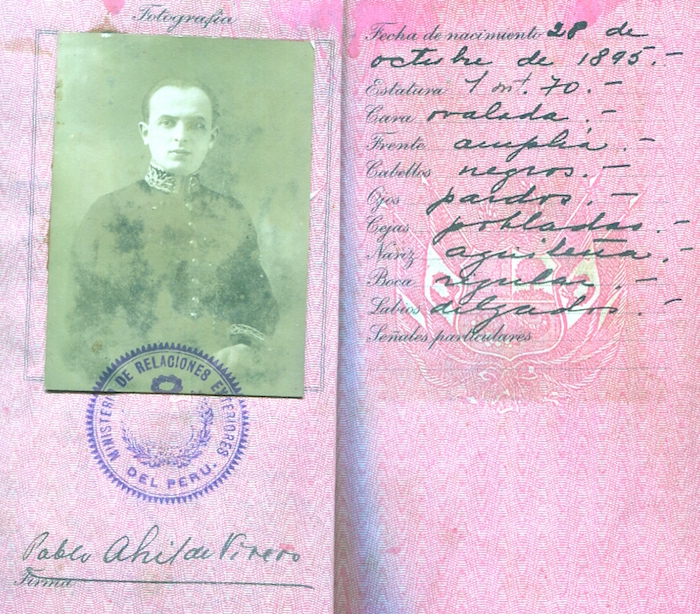 Fotografía
MINISTERIO DE RELACIONES EXTERIORES
DEL PERU.
Pablo Abril de Vivero
Firma
Fecha de nacimiento 28 de
octubre de 1895.-
Estatura 1 mt. 70.-
Cara ovalada.-
Frente amplia.-
Cabellos negros.-
Ojos pardos.-
Cejas pobladas.-
Nariz aguileña.-
Boca regular.-
Labios delgados.-
Señales particulares